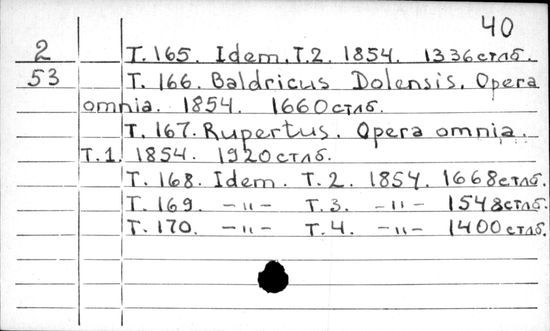 40
2 Т. 165. Idem. Т. 2. 1854. 1336 стлб.
53 Т. 166. Baldricus Dolensis. Opera
omnia. 1854. 1660 стлб.
Т. 167. Rupertus. Opera omnia.
Т. 1. 1854. 1920 стлб.
Т. 168. Idem. Т. 2. 1854. 1668 стлб.
Т. 169. -„- Т. 3. -„- 1548 стлб.
Т. 170. -„- Т. 4. -„- 1400 стлб.